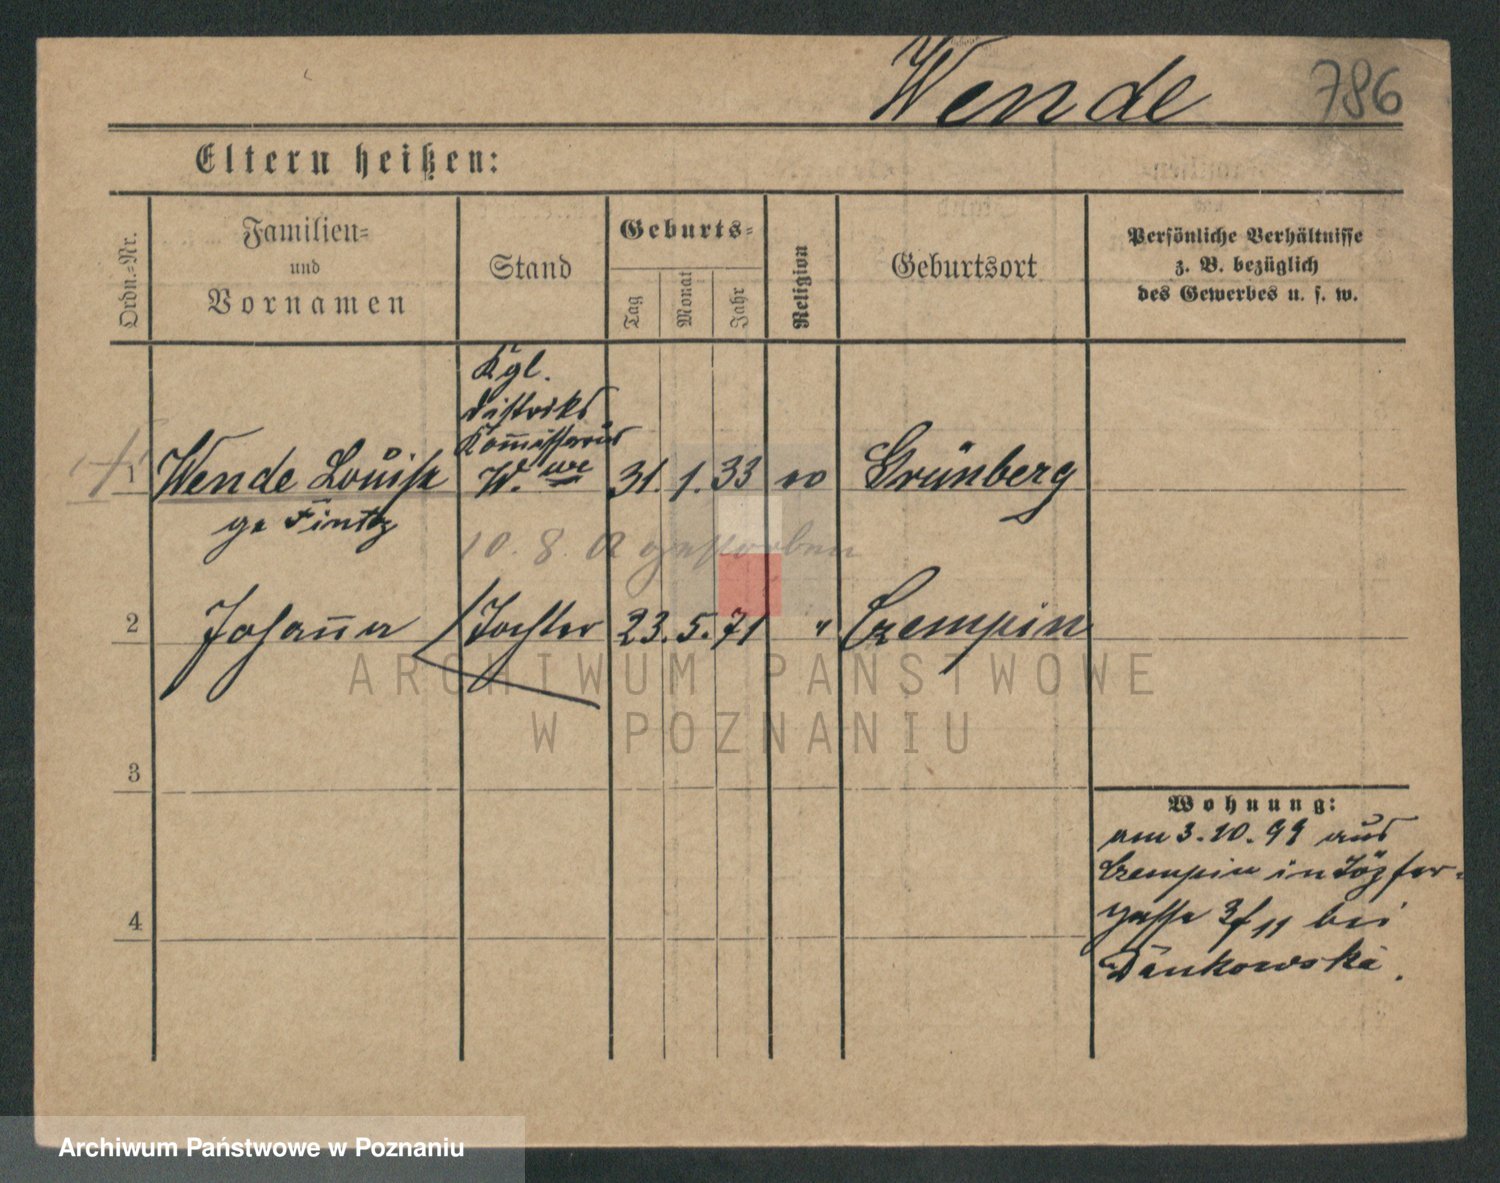 Wende 786
Eltern heißen:
Ordn.-Nr.
Familien-
und
Vornamen
Stand
Geburts-
Tag
Monat
Jahr
Religion
Geburtsort
Persönliche Verhältnisse
z. B. bezüglich
des Gewerbes u. s. w.
Kgl.
Distrikts
Kommissarius
1 Wende Louise W.we 31. 1. 33 Grünberg
ge
10. 8. gestorben
2 Johanna Tochter 23. 5. 71 " Czempin
ARCHIWUM PAŃSTWOWE
W POZNANIU
3
Wohnung:
am 3. 10. 99 aus
Czempin in Töpfer-
4
gasse 3/11 bei
Dankowska.
Archiwum Państwowe w Poznaniu